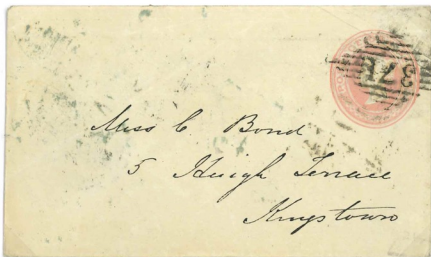 Miss C. Bond
5 Haigh Terrace
Kingstown